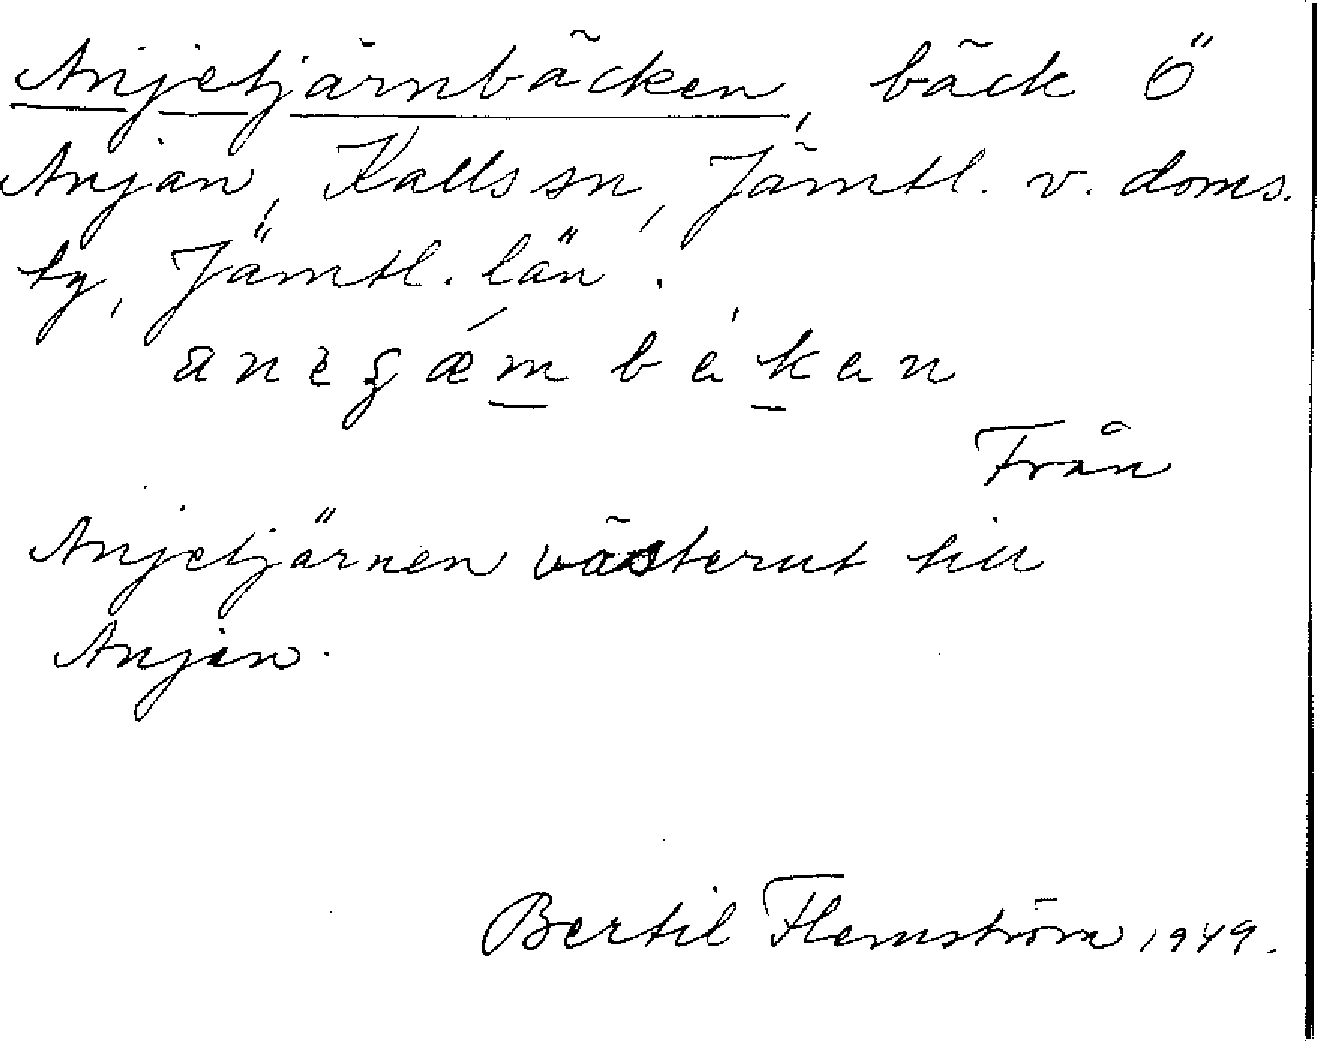 Anjetjärnbäcken, bäck Ö
Anjan, Kalls sn, Jämtl. v. doms.
ty, Jämtl. län.
Från
Anjetjärnen västerut till
Anjan.
Bertil Flemström 1949.